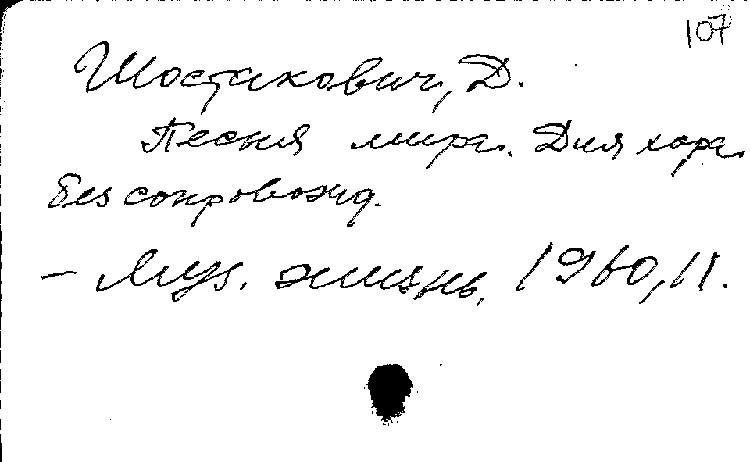 107
Шостакович, Д.
Песня мира. Для хора
без сопровожд.
— Муз. жизнь, 1960, 11.